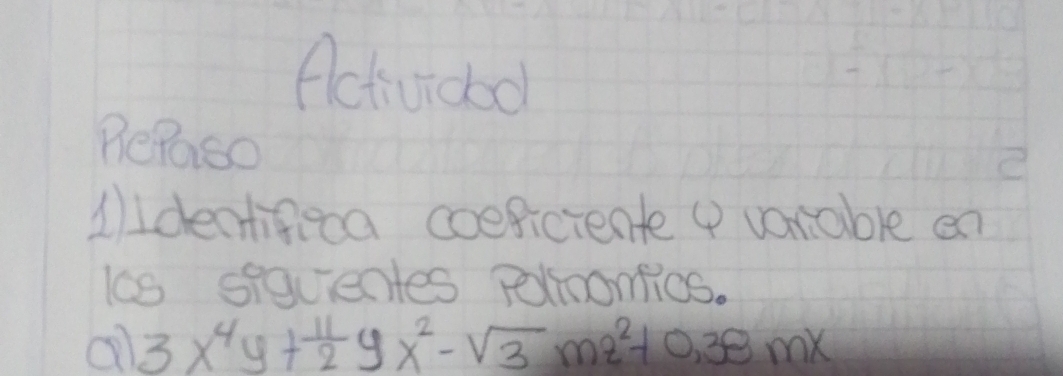 Actividad
Repaso
1) Identifica coeficiente y variable en
los siguientes Polinomios.
a) 3x⁴y + 11/2 yx² - √3 mz² + 0,38 mx